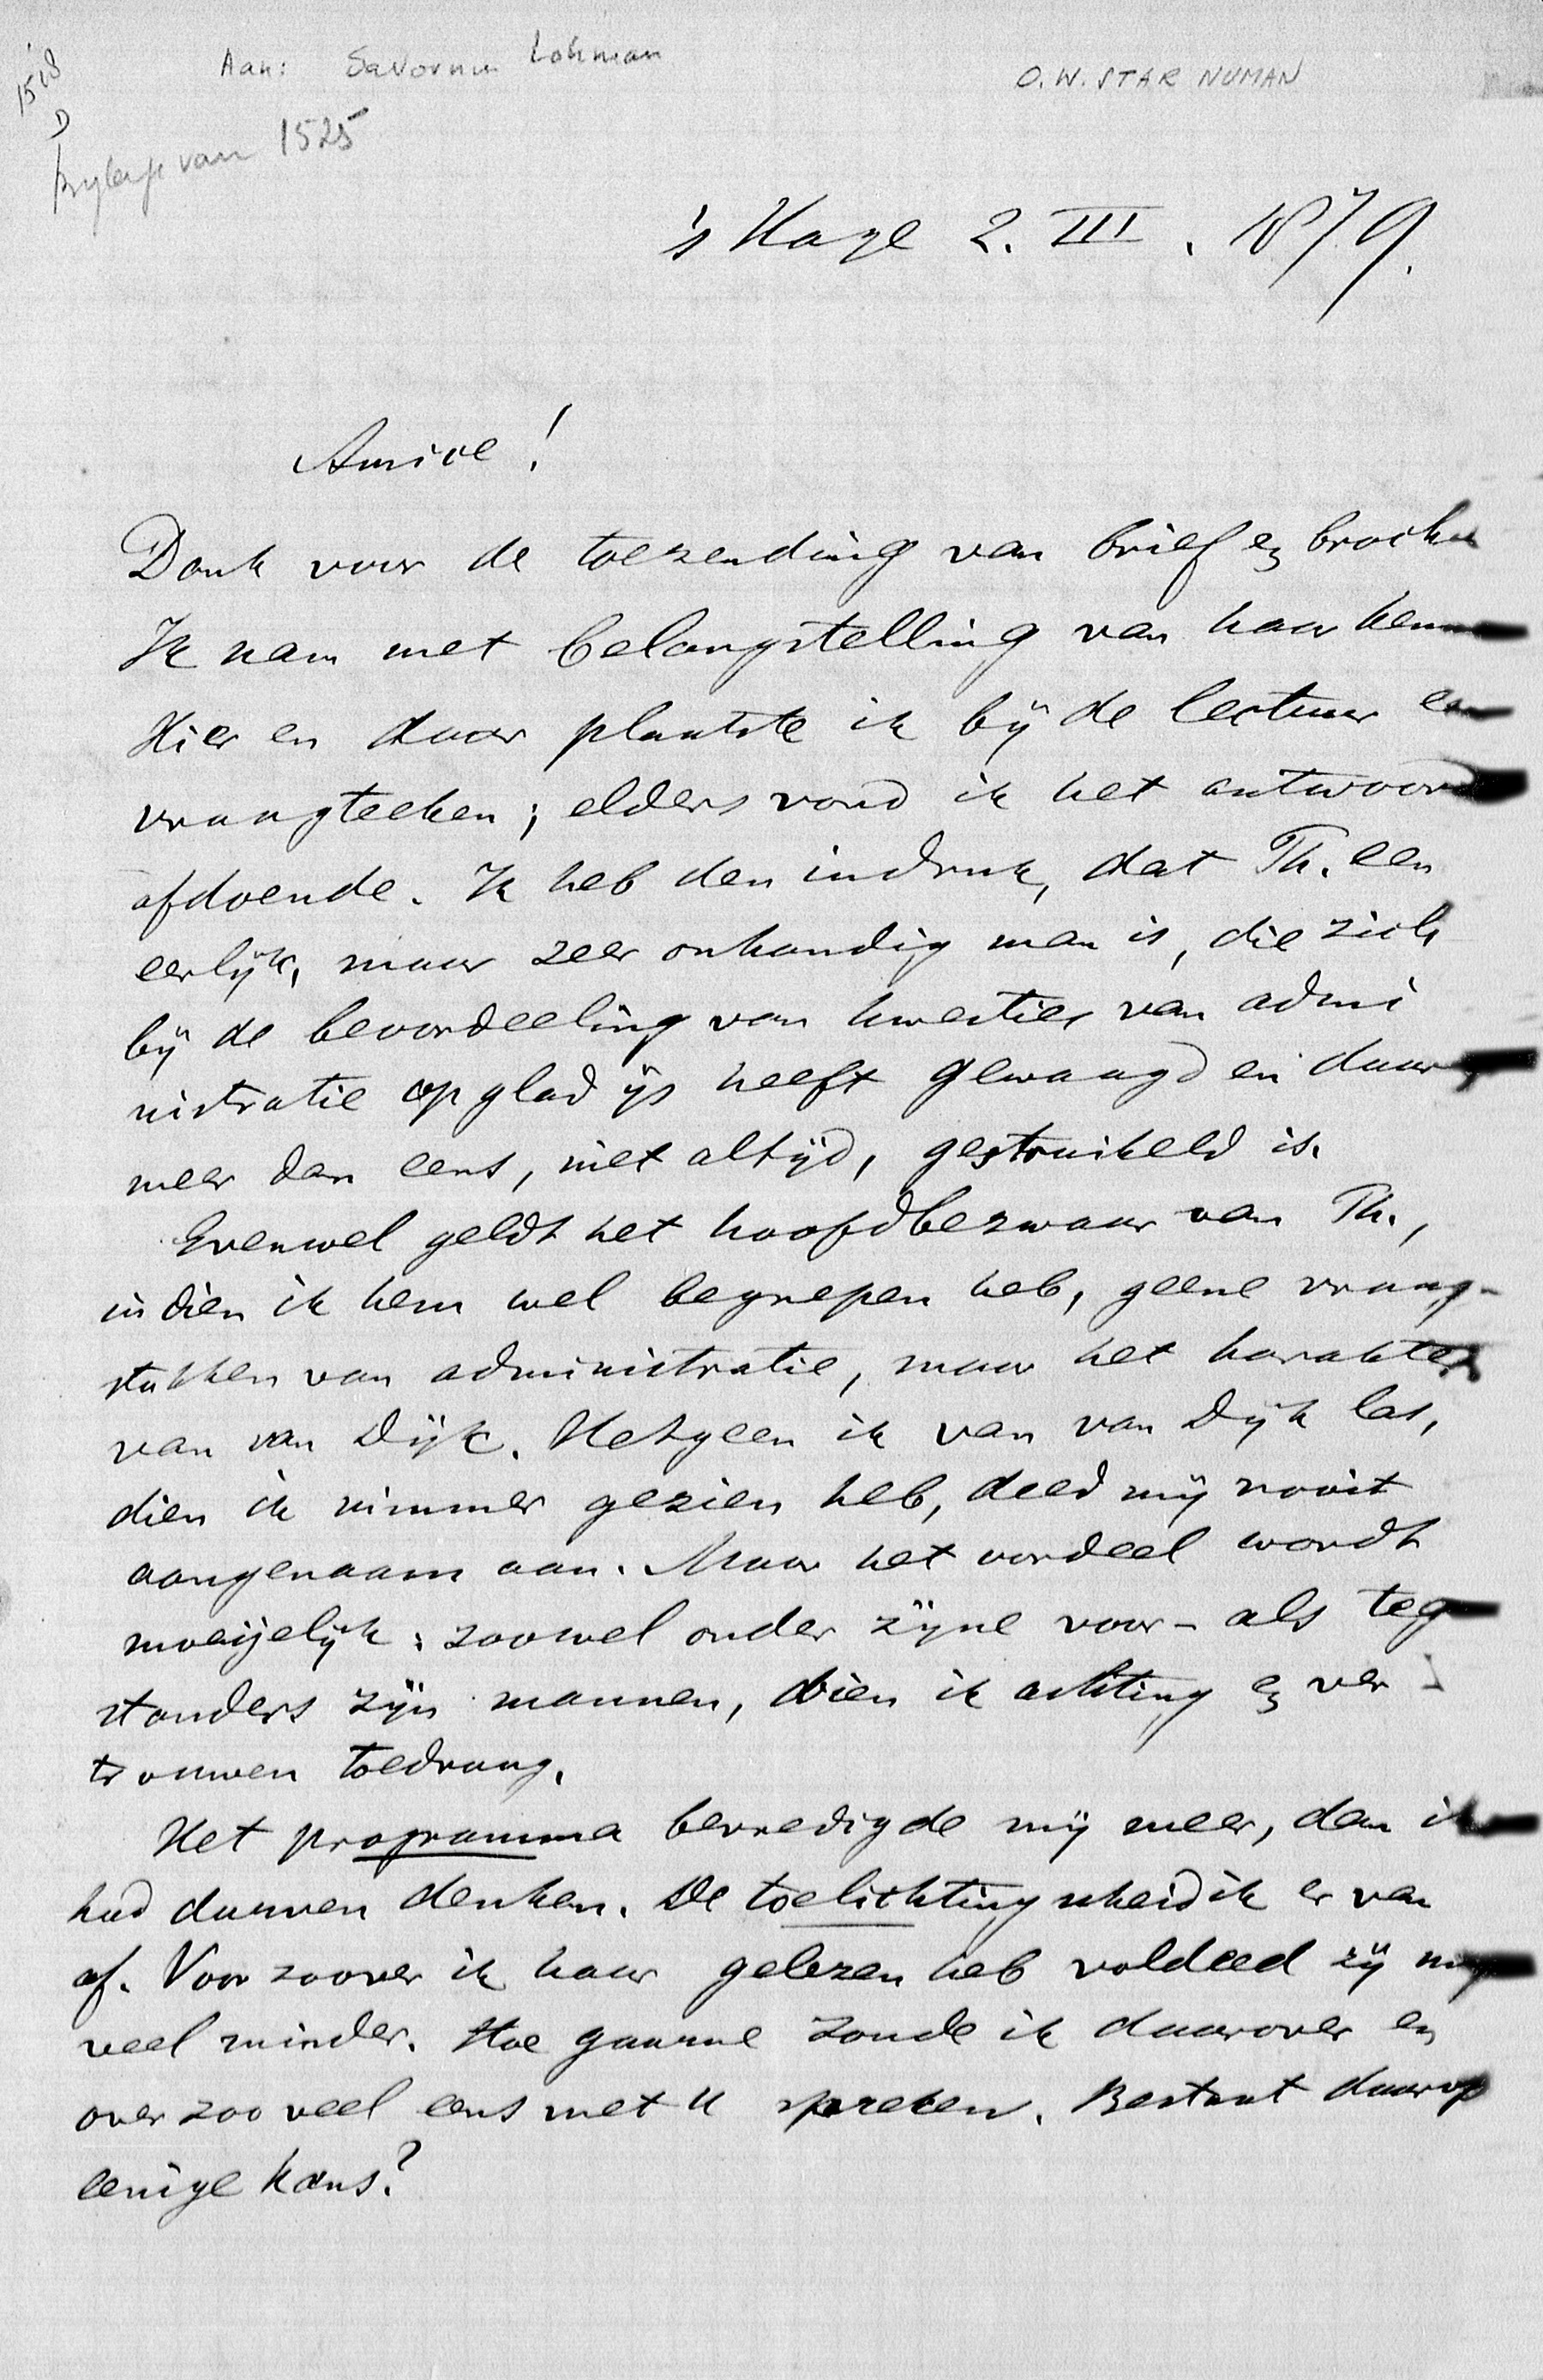 1518
Aan: Savornin Lohman
O.W. STAR NUMAN
D
Bijlage van 1525
's Hage 2. III. 1879.
Amice!
Dank voor de toezending van brief en
Ik nam met belangstelling van haar
Hier en daar plaatste ik bij de lectuur een
vraagteeken; elders vond ik het antwoord
afdoende. Ik heb den indruk, dat Th. een
eerlijk, maar zeer onhandig man is, die zich
bij de beoordeeling van kwesties van admi
nistratie op glad ijs heeft gewaagd en daar
meer dan eens, niet altijd, gestruikeld is.
Evenwel geldt het hoofdbezwaar van Th.,
indien ik hem wel begrepen heb, geene vraag-
stukken van administratie, maar het karakter
van van Dijk. Hetgeen ik van van Dijk las,
dien ik nimmer gezien heb, deed mij nooit
aangenaam aan. Maar het oordeel wordt
moeijelijk: zoowel onder zijne voor- als teg
standers zijn mannen, dien ik achting en ver
trouwen toedraag.
Het programma bevredigde mij meer, dan ik
had durven denken. De toelichting scheid ik er van
af. Voor zoover ik haar gelezen heb voldeed zij mij
veel minder. Hoe gaarne zoude ik daarover en
over zoo veel eens met U spreken. Bestaat daarop
eenige kans?